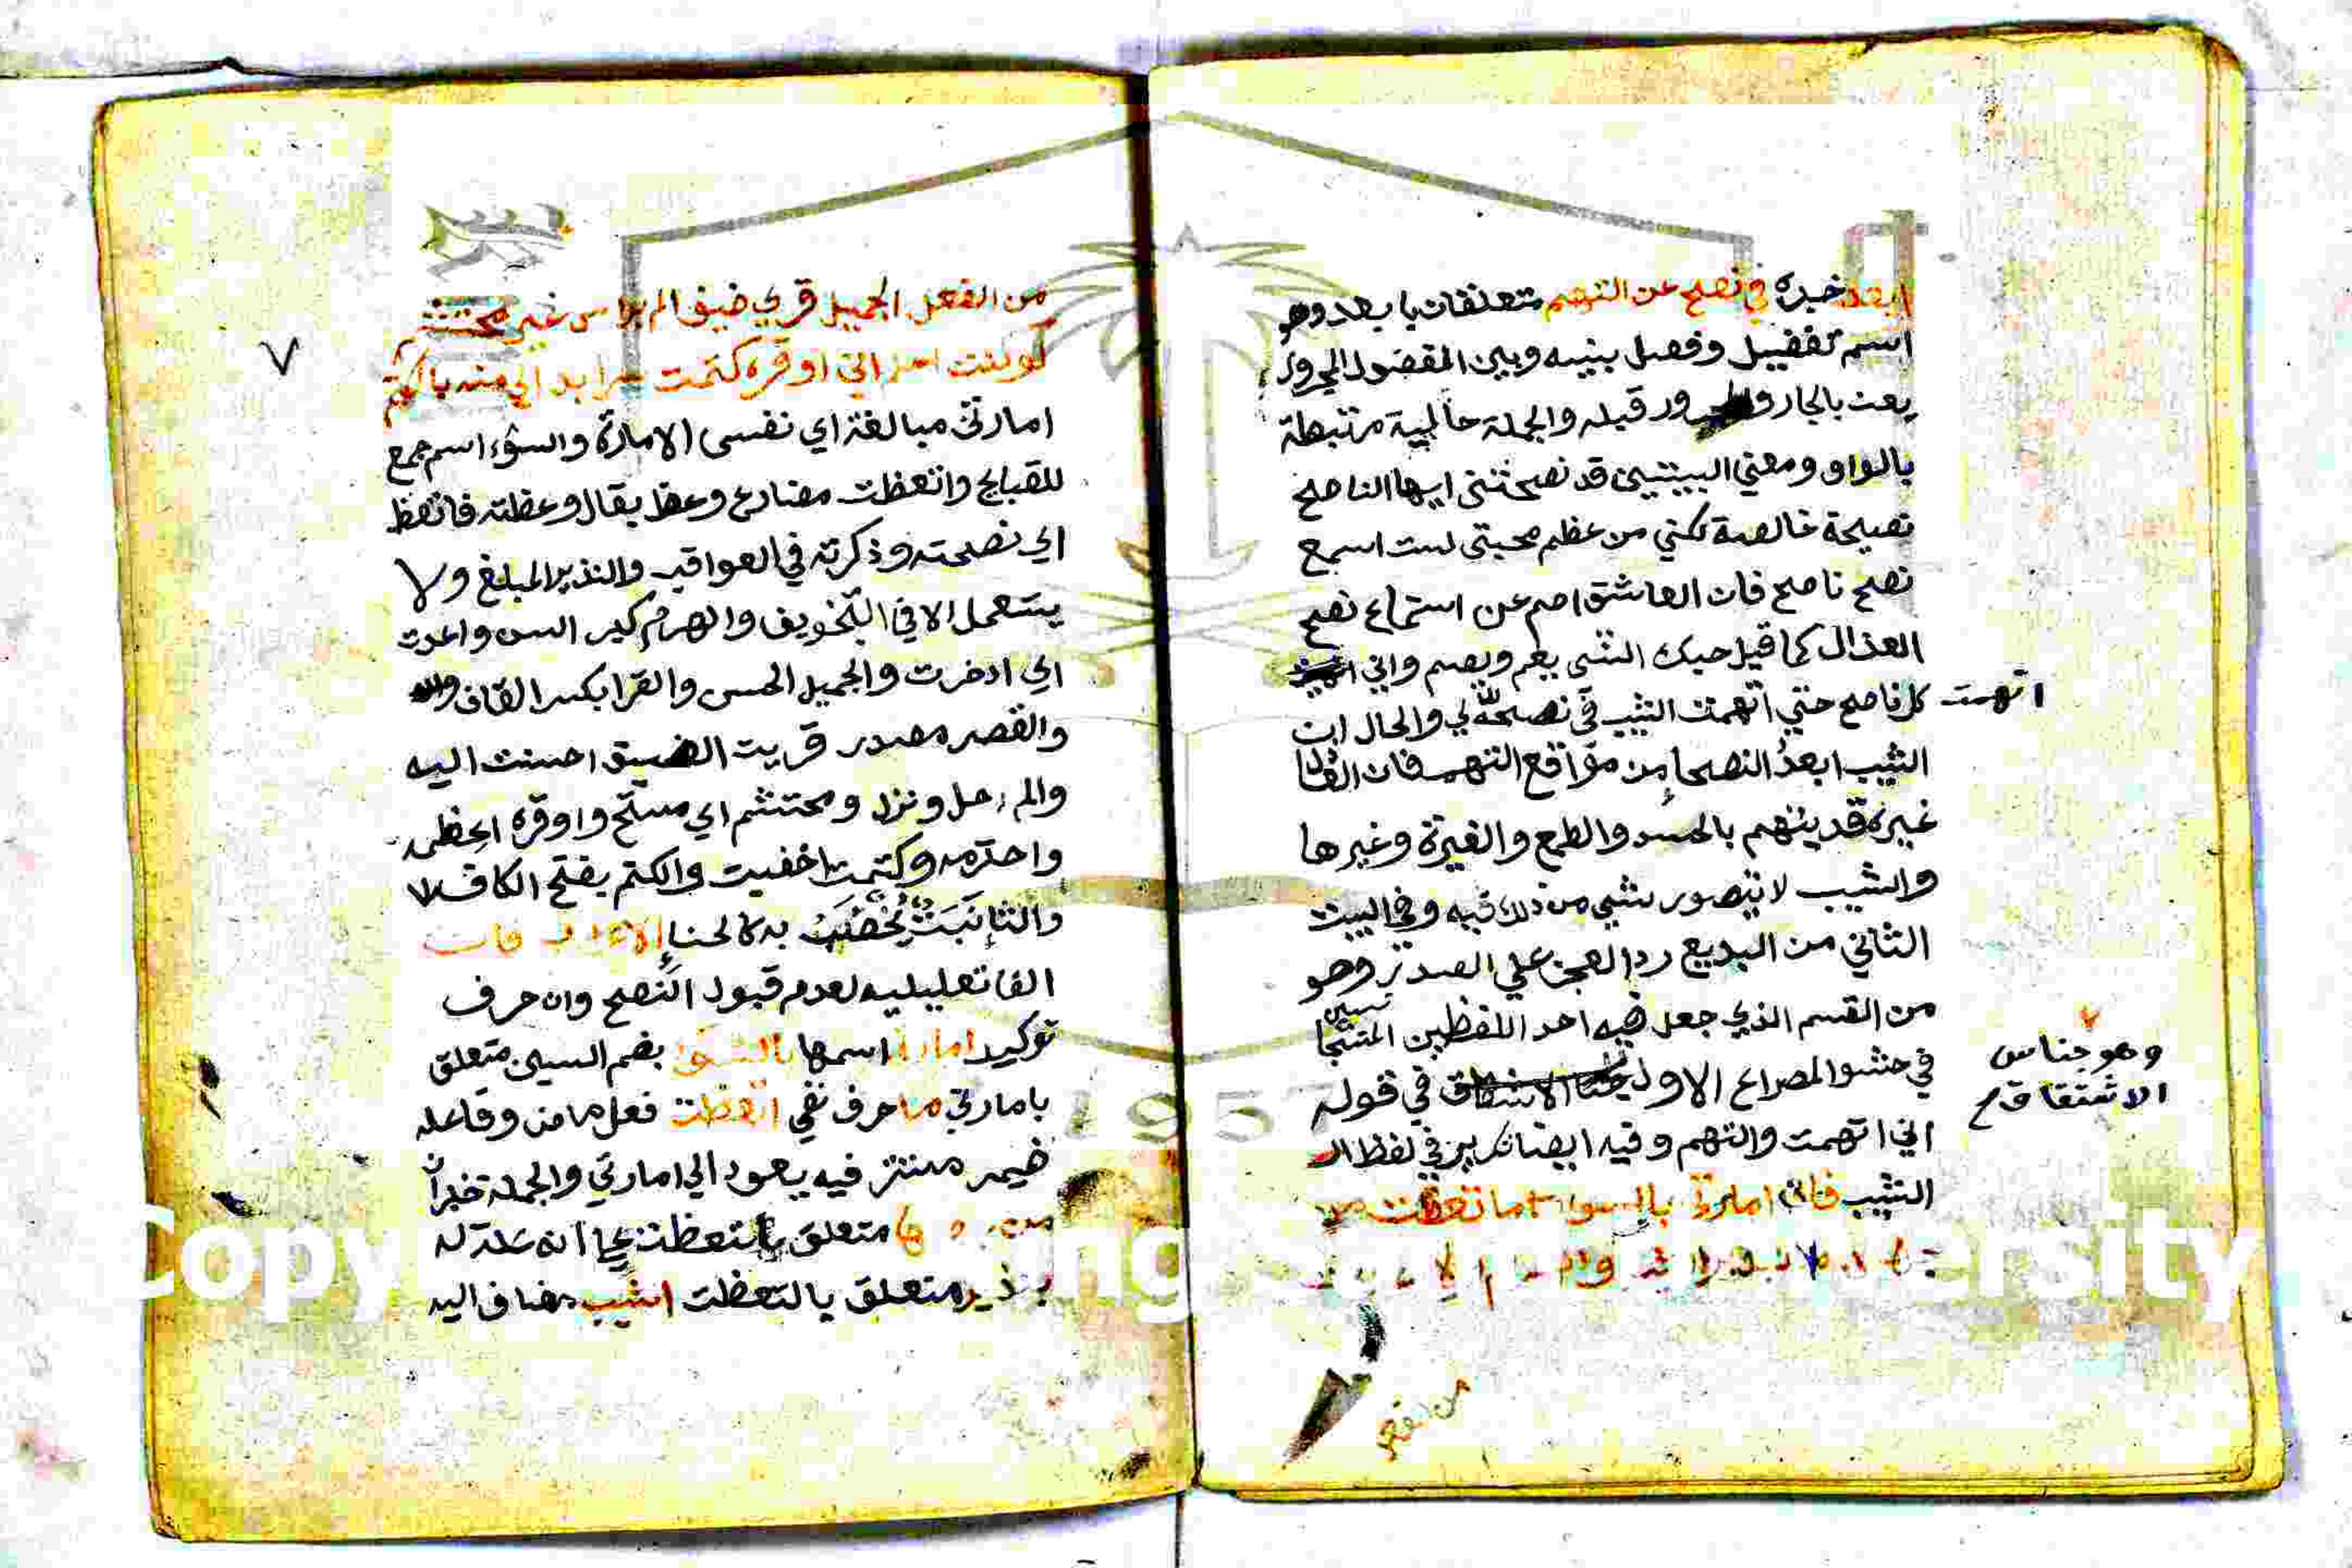 ابعد خبره في نصح عن التهم متعلقان بابعد وهو
اسم تفضيل وفصل بينه وبين المفضول المجرور
بعن بالجار والمجرور قبله والجملة حالية مرتبطة
بالواو ومعني البيتين قد نصحتني ايها الناصح
نصيحة خالصة لكني من عظم محبتي لست اسمع
نصح ناصح فان العاشق اصم عن استماع نصح
العذال كما قيل حبك الشي يعم ويصم واني
اتهمت كل ناصح حتي اتهمت الشيب في نصحه لي والحال ان
الشيب ابعد النصحا من مواقع التهم فان
غيره قد يتهم بالحسد والطمع والغيرة وغيرها
والشيب لا يتصور شي من ذلك فيه وفي البيت
الثاني من البديع رد العجز علي الصدر وهو
من القسم الذي جعل فيه احد اللفظين المتجانسين
في حشو المصراع الاول في قوله
وهو جناس
الاشتقاق
اني اتهمت والتهم وفيه ايضا تكرير في لفظ
الشيب فان امارتي بالسوء ما اتعظت
من الفعل
٧
من الفعل الجميل قري ضيف الم براسي غير محتشم
لو كنت اعلم اني ما اوقره كتمت سرا بدا لي منه بالكتم
امارتي مبالغة اي نفسي الامارة والسؤ اسم جمع
للقبايح واتعظت مضارع وعظ يقال وعظته فاتعظ
اي نصحته وذكرته في العواقب والنذير المبلغ ولا
يستعمل الا في التخويف والهرم كبر السن واعدت
اي ادخرت والجميل الحسن والقرا بكسر القاف
والقصر مصدر قريت الضيق احسنت اليه
والم حل ونزل ومحتشم اي مستح واوقره اعظمه
واحترمه وكتمت اخفيت والكتم بفتح الكاف
والتا نبت يخضب به كالحنا فان
الفا تعليليه لعدم قبول النصح وان حرف
توكيد امارتي اسمها بالسوء بضم السين متعلق
بامارتي ما حرف نفي اتعظت فعل ماض وفاعله
ضمير مستتر فيه يعود الي امارتي والجملة خبر ان
متعلق باتعظت علي انه علة له
بنذير متعلق باتعظت الشيب مضاف اليه
Copy
1957
ersity